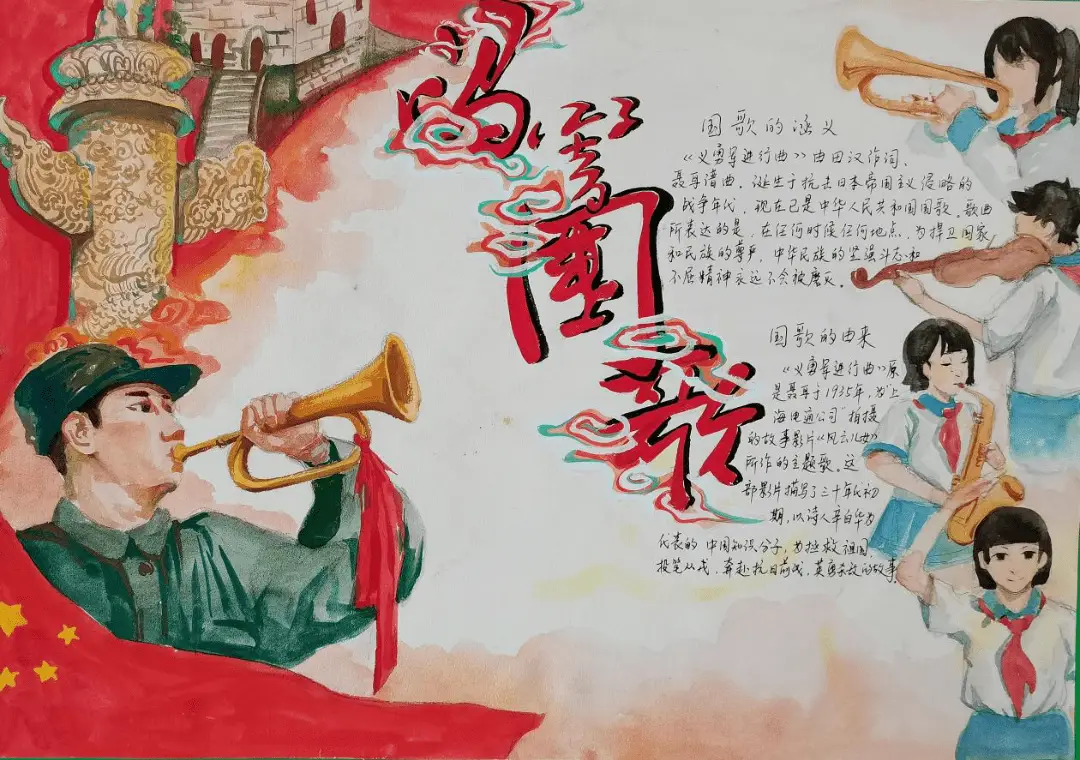 国
歌
国歌的涵义
《义勇军进行曲》由田汉作词、
聂耳谱曲，诞生于抗击日本帝国主义侵略的
战争年代，现在已是中华人民共和国国歌。歌曲
所表达的是，在任何时候任何地点，为捍卫国家
和民族的尊严，中华民族的坚强斗志和
不屈精神永远不会被磨灭。
国歌的由来
《义勇军进行曲》原
是聂耳于1935年，为上
海电通公司拍摄
的故事影片《风云儿女》
所作的主题歌。这
部影片描写了三十年代初
期，以诗人辛白华为
代表的中国知识分子，为拯救祖国，
投笔从戎，奔赴抗日前线，英勇杀敌的故事。